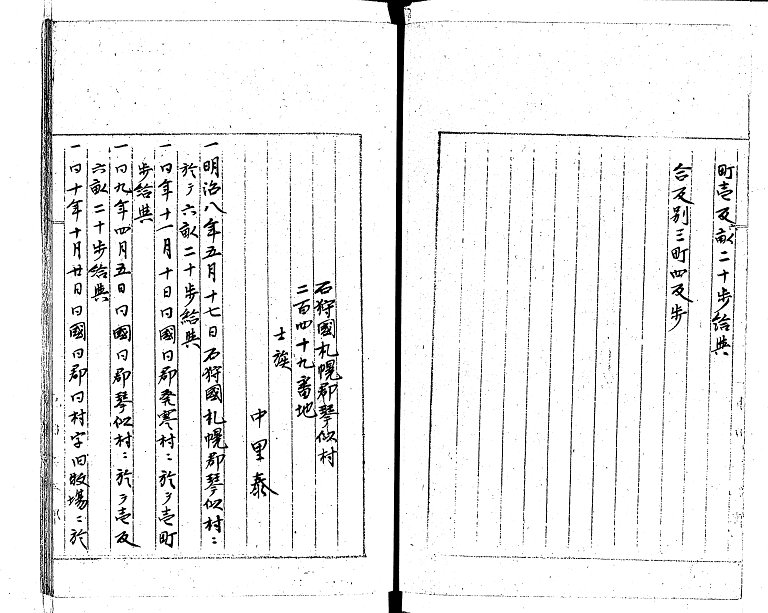 町壱反畝二十歩給與
合反別三町四反歩
石狩國札幌郡琴似村
二百四十九番地
士族
中里泰
一明治八年五月十七日石狩國札幌郡琴似村ニ
於テ六畝二十歩給與
一仝年十一月十日仝國仝郡発寒村ニ於テ壱町
歩給與
一仝九年四月五日仝國仝郡琴似村ニ於テ壱反
六畝二十歩給與
一仝十年十月廿日仝國仝郡仝村字旧牧場ニ於